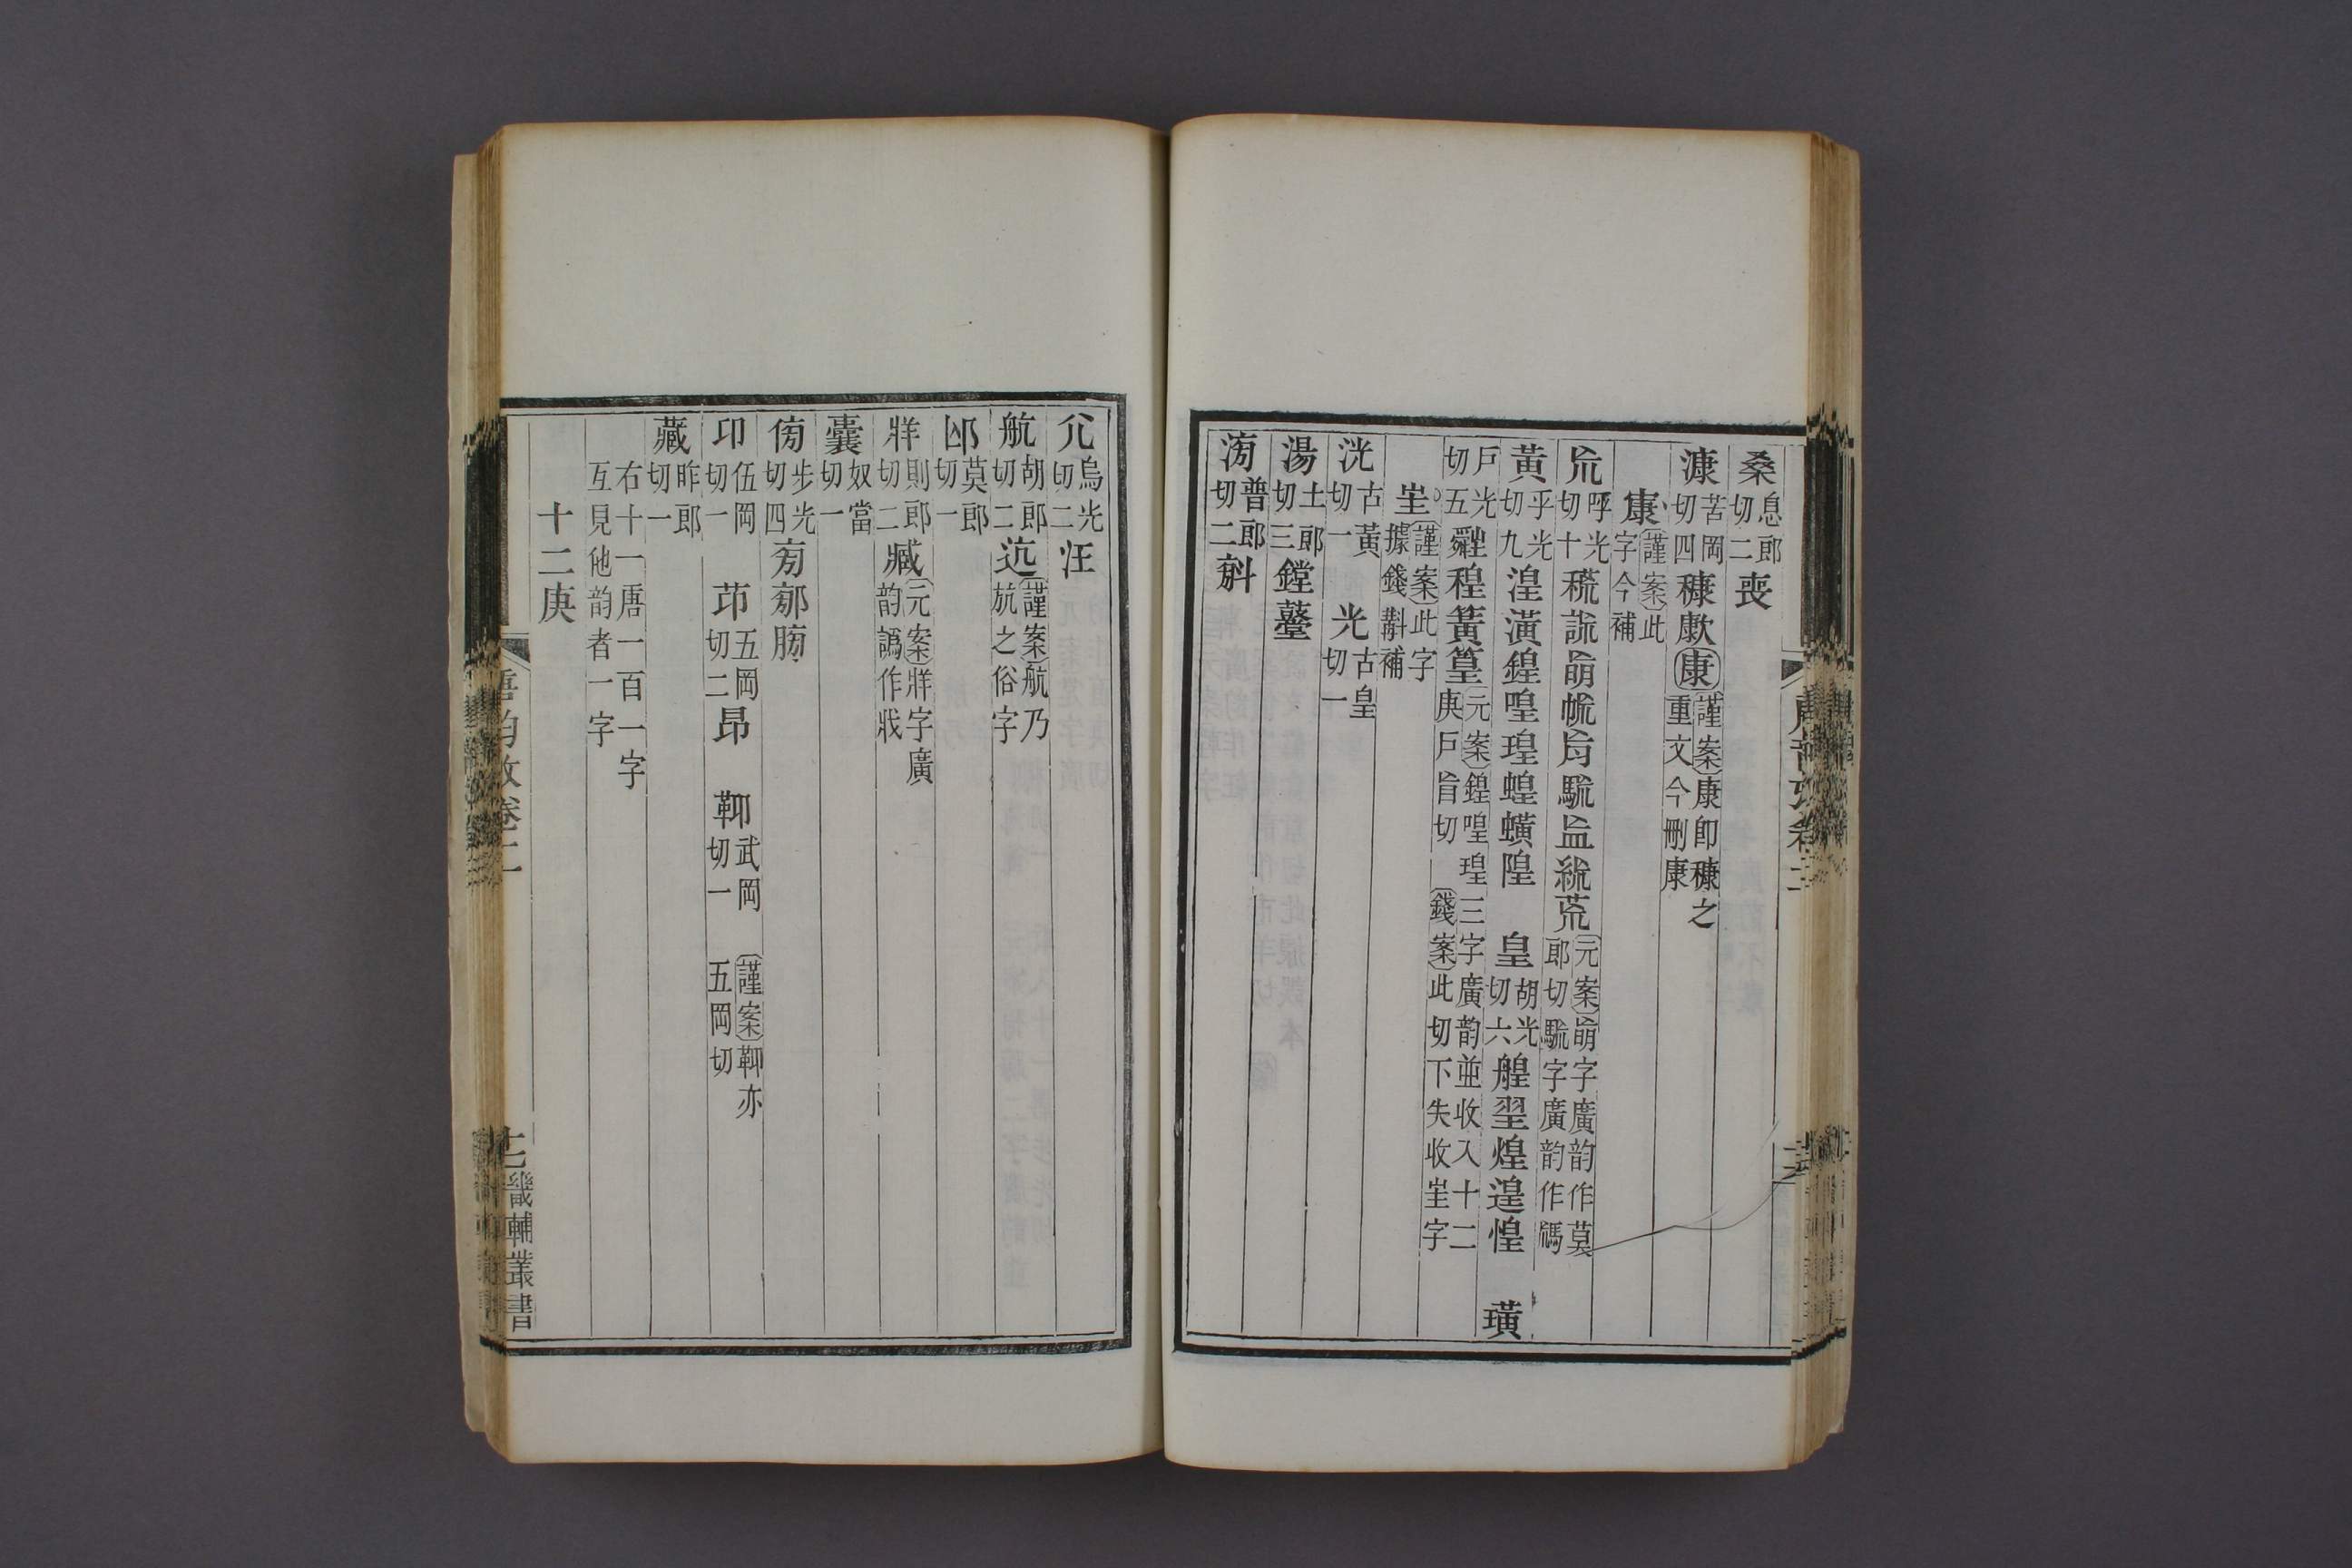 桑息郎切二喪
漮苦岡切四穅歑康謹案康卽穅之重文今刪康
𡫏謹案此字今補
巟呼光切十𥡃詤萌㡆肓䮲衁𦀑荒元案萌字廣韵作莫郎切䮲字廣韵作𩢍
黃乎光切九湟潢鍠喤瑝蝗蟥隍 皇胡光切六艎翌煌遑惶 璜
戶光切五雞䅣簧篁元案鍠喤瑝三字廣韵並收入十二庚戶盲切 錢案此切下失收㞷字
㞷謹案此字據錢斠補
洸古黃切一 光古皇切一
湯土郎切三鏜鼞
滂普郎切二斛
尣烏光切二汪
航胡郎切二迒謹案航乃斻之俗字
邙莫郎切一
牂則郎切二臧元案牂字廣韵譌作戕
囊奴當切一
傍步光切四㫄郷膀
卬伍岡切一 茚五岡切二昂 䩕武岡切一 謹案䩕亦五岡切
藏昨郎切一
右十一唐一百一字互見他韵者一字
十二庚
唐韵攷卷二
十七
畿輔叢書